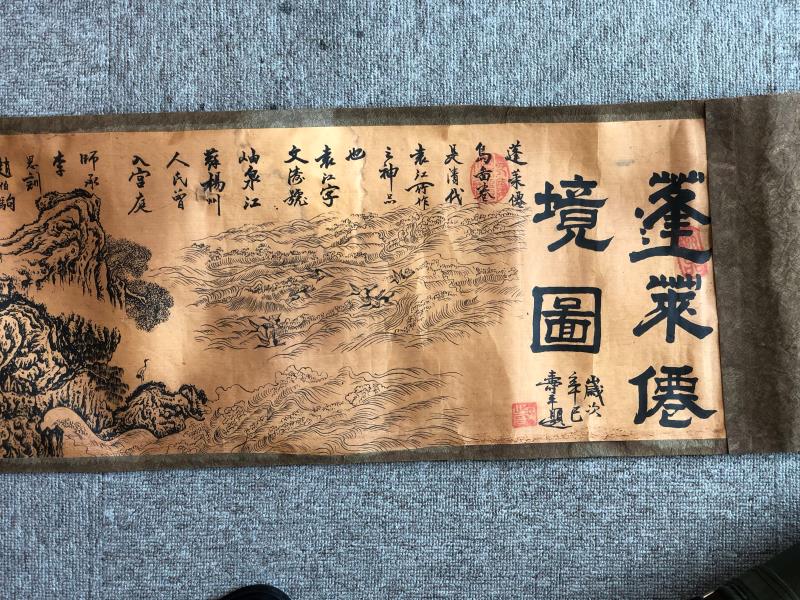 蓬萊僊
境圖
歲次
辛巳
壽平題
蓬萊僊
島画卷
是清代
袁江所作
之神品
也
袁江字
文濤號
岫泉江
蘇楊州
人民曾
入宮庭
師承
李
思訓
趙伯駒